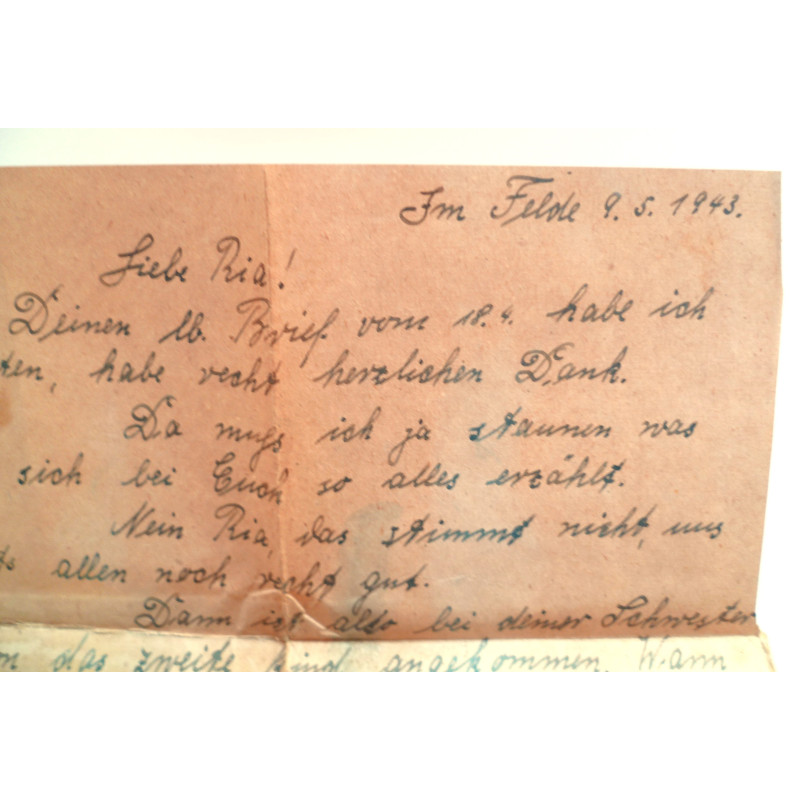 Im Felde 9. 5. 1943.
Liebe Ria!
Deinen lb. Brief vom 18. 4. habe ich
ten, habe recht herzlichen Dank.
Da muss ich ja staunen was
sich bei Euch so alles erzählt.
Nein Ria, das stimmt nicht, uns
ts allen noch recht gut.
Dann ist also bei deiner Schwester
on das zweite Kind angekommen. Wann